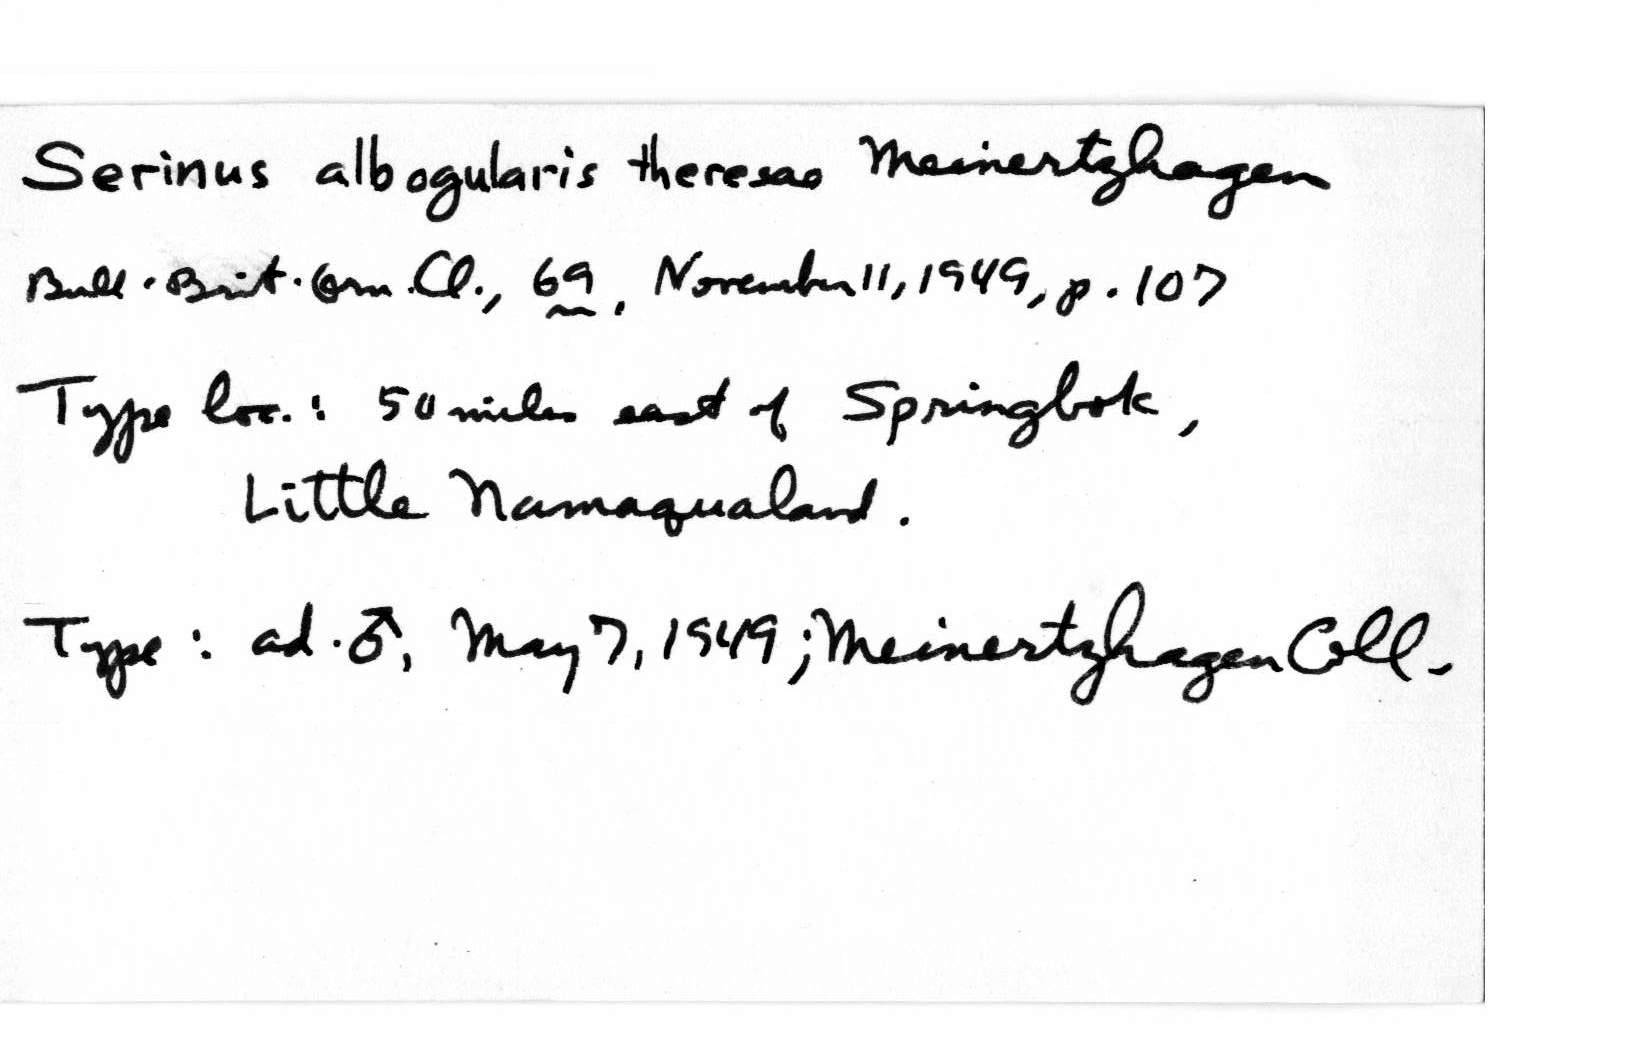 Serinus albogularis theresae Meinertzhagen
Bull. Brit. Orn. Cl., 69, November 11, 1949, p. 107
Type loc.: 50 miles east of Springbok,
Little Namaqualand.
Type: ad. ♂, May 7, 1949; Meinertzhagen Coll.